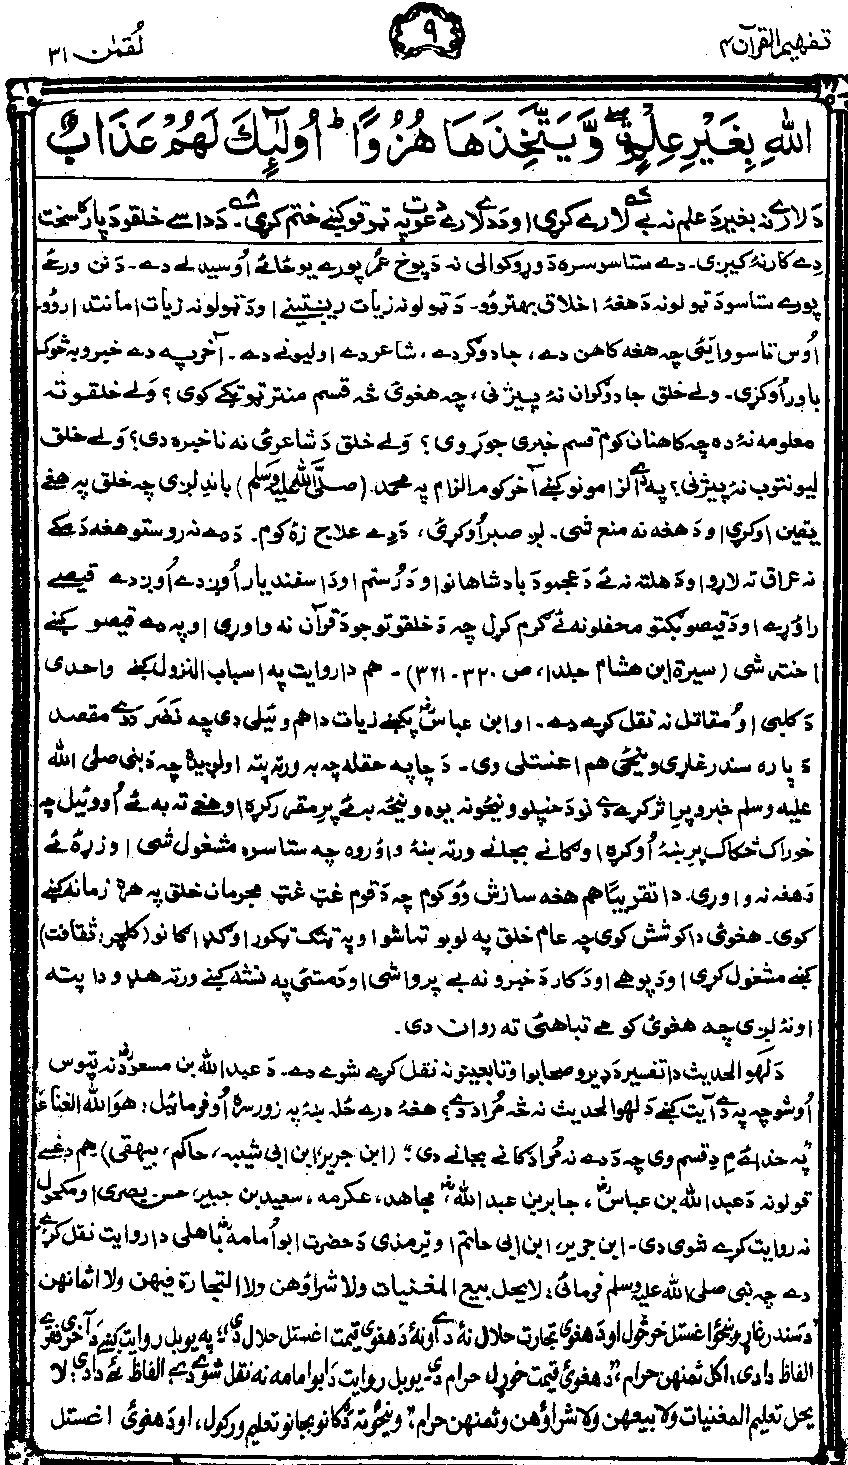 تفهيم القرآن ۴
۹
لُقمٰن ۳۱
اللهِ بِغَيْرِ عِلْمٍ وَّيَتَّخِذَهَا هُزُوًا ؕ اُولٰٓئِكَ لَهُمْ عَذَابٌ
دَ لارے نه بغير دَ علم نه بے لارے کړی او دَ دے لارے دعوت په ټوقو کښے ختم کړی۔ دَ داسے خلقو دَ پاره سخت
دے کار نۀ کیږی۔ دے ستاسو سره دَ وړوکوالی نه دَ پوخ عمر پورے یو ځائے اوسیدلے دے۔ دَ نن ورځے
پورے ستاسو دَ ټولو نه دَ هغۀ اخلاق بهتر وُو۔ دَ ټولو نه زیات ریښتینے او دَ ټولو نه زیات امانتدار وُو۔
اوس تاسو وایئ چه هغه کاهن دے، جادوګر دے، شاعر دے او لیونے دے۔ آخر په دے خبرو به څوک
باور اُوکړی۔ ولے خلق جادوګران نۀ پیژنی، چه هغوئ څه قسم منتر ټوټکے کوی؟ ولے خلقو ته
معلومه نۀ ده چه کاهنان کوم قسم خبری جوړوی؟ ولے خلق دَ شاعرئ نه ناخبره دی؟ ولے خلق
لیونتوب نۀ پیژنی؟ په دے الزامونو کښے آخر کوم الزام په محمد (صلی الله علیه وسلم) باندے لږی چه خلق په هغے
یقین اوکړی او دَ هغه نه منع شی۔ لږ صبر اُوکړئ، دَ دے علاج زۀ کوم۔ دَ دے نه روستو هغه دَ مکے
نه عراق ته لاړو او دَ هلته نه ئے دَ عجمو دَ بادشاهانو او دَ رُستم او دَ اسفندیار اُوږدے اُوږدے قیصے
راوړے او دَ قیصو ټکتو محفلونه ئے ګرم کړل چه دَ خلقو توجو دَ قرآن نه واوړی او په دے قیصو کښے
اخته شی (سیرة ابن هشام جلد ۱، ص ۳۲۰-۳۲۱)۔ هم دا روایت په اسباب النزول کښے واحدی
دَ کلبی او مُقاتل نه نقل کړے دے۔ او ابن عباسؓ پکښے زیات دا هم وئیلی دی چه نَضَر دَ دے مقصد
دَ پاره سندرغاړی وینځی هم اغستلی وی۔ دَ چا په حقله چه به ورته پته اولږیده چه دَ نبی صلی الله
علیه وسلم خبرو پرِ اثر کړے دے نو دَ خپلو وینځونه یوه وینځه به ئے پرِ مقرر کړه او هغے ته به ئے اُووئیل چه
خوراک څکاک پرِ ښۀ اُوکړه او ګانے بجانے ورته ښۀ واؤروه چه ستاسره مشغول شی او زړۀ ئے
دَ هغه نه واوړی۔ دا تقریبًا هم هغه سازش وُو کوم چه دَ قوم غټ غټ مجرمان خلق په هره زمانه کښے
کوی۔ هغوئ دا کوشش کوی چه عام خلق په لوبو تماشو او په ټنګ ټکور او ګډا ګانو (کلچر: ثقافت)
کښے مشغول کړی او دَ پوهے او دَ کار دَ خبرو نه بے پروا شی او دَ مستئ په نشه کښے ورته هډو دا پته
اونۀ لږی چه هغوئ کومے تباهئ ته روان دی۔
دَ لَهو الحدیث دا تفسیر دَ ډیرو صحابو او تابعینو نه نقل کړے شوے دے۔ دَ عبدالله بن مسعودؓ نه تپوس
اُوشو چه په دے آیت کښے دَ لهو الحدیث نه څه مُراد دے؟ هغۀ درے ځله ښۀ په زور سره اُوفرمائیل: هو اللهِ الغناء
"په خدائے مِ دِ قسم وی چه دَ دے نه مُراد ګانے بجانے دی" (ابن جریر، ابن ابی شیبه، حاکم، بیهقی) هم دغے
قولونه دَ عبدالله بن عباسؓ، جابر بن عبداللهؓ، مجاهد، عکرمه، سعید بن جبیر، حسن بصری او مکحول
نه روایت کړے شوی دی۔ ابن جریر، ابن ابی حاتم او ترمذی دَ حضرت ابو اُمامهؓ باهلی دا روایت نقل کړے
دے چه نبی صلی الله علیه وسلم فرمائی: لایحل بیع المغنیات ولا شراؤهن ولا التجارة فیهن ولا اثمانهن
"دَ سندرغاړو وینځو اغستل خرڅول او دَ هغوئ تجارت حلال نۀ دے اونۀ دَ هغوئ قیمت اغستل حلال دی" په یو بل روایت کښے دَ آخری فقرے
الفاظ دا دی: اکل ثمنهن حرام "دَ هغوئ قیمت خوړل حرام دی۔" یو بل روایت دَ ابو امامه نه نقل شوے دے الفاظ ئے دا دی: لا
یحل تعلیم المغنیات ولا بیعهن ولا شراؤهن وثمنهن حرام "وینځو ته دَ ګانو بجانو تعلیم ورکول، او دَ هغوئ اغستل